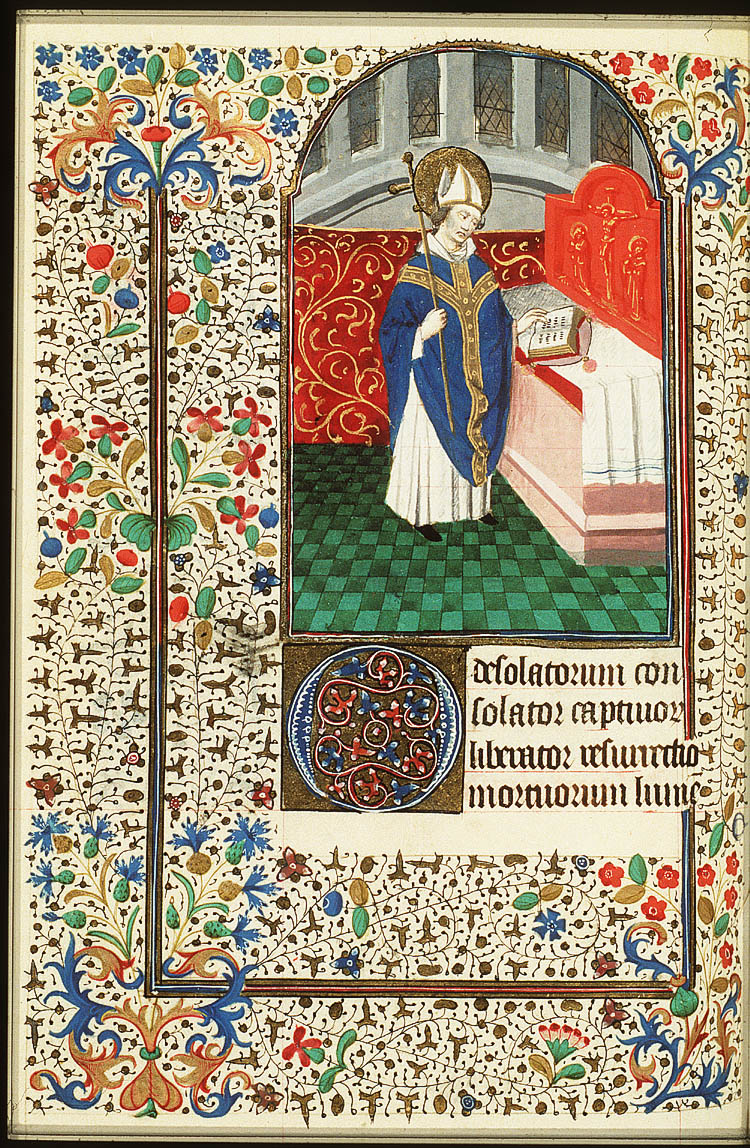 O desolatorum con
solator captiuor
liberator resurrectio
mortuorum lume